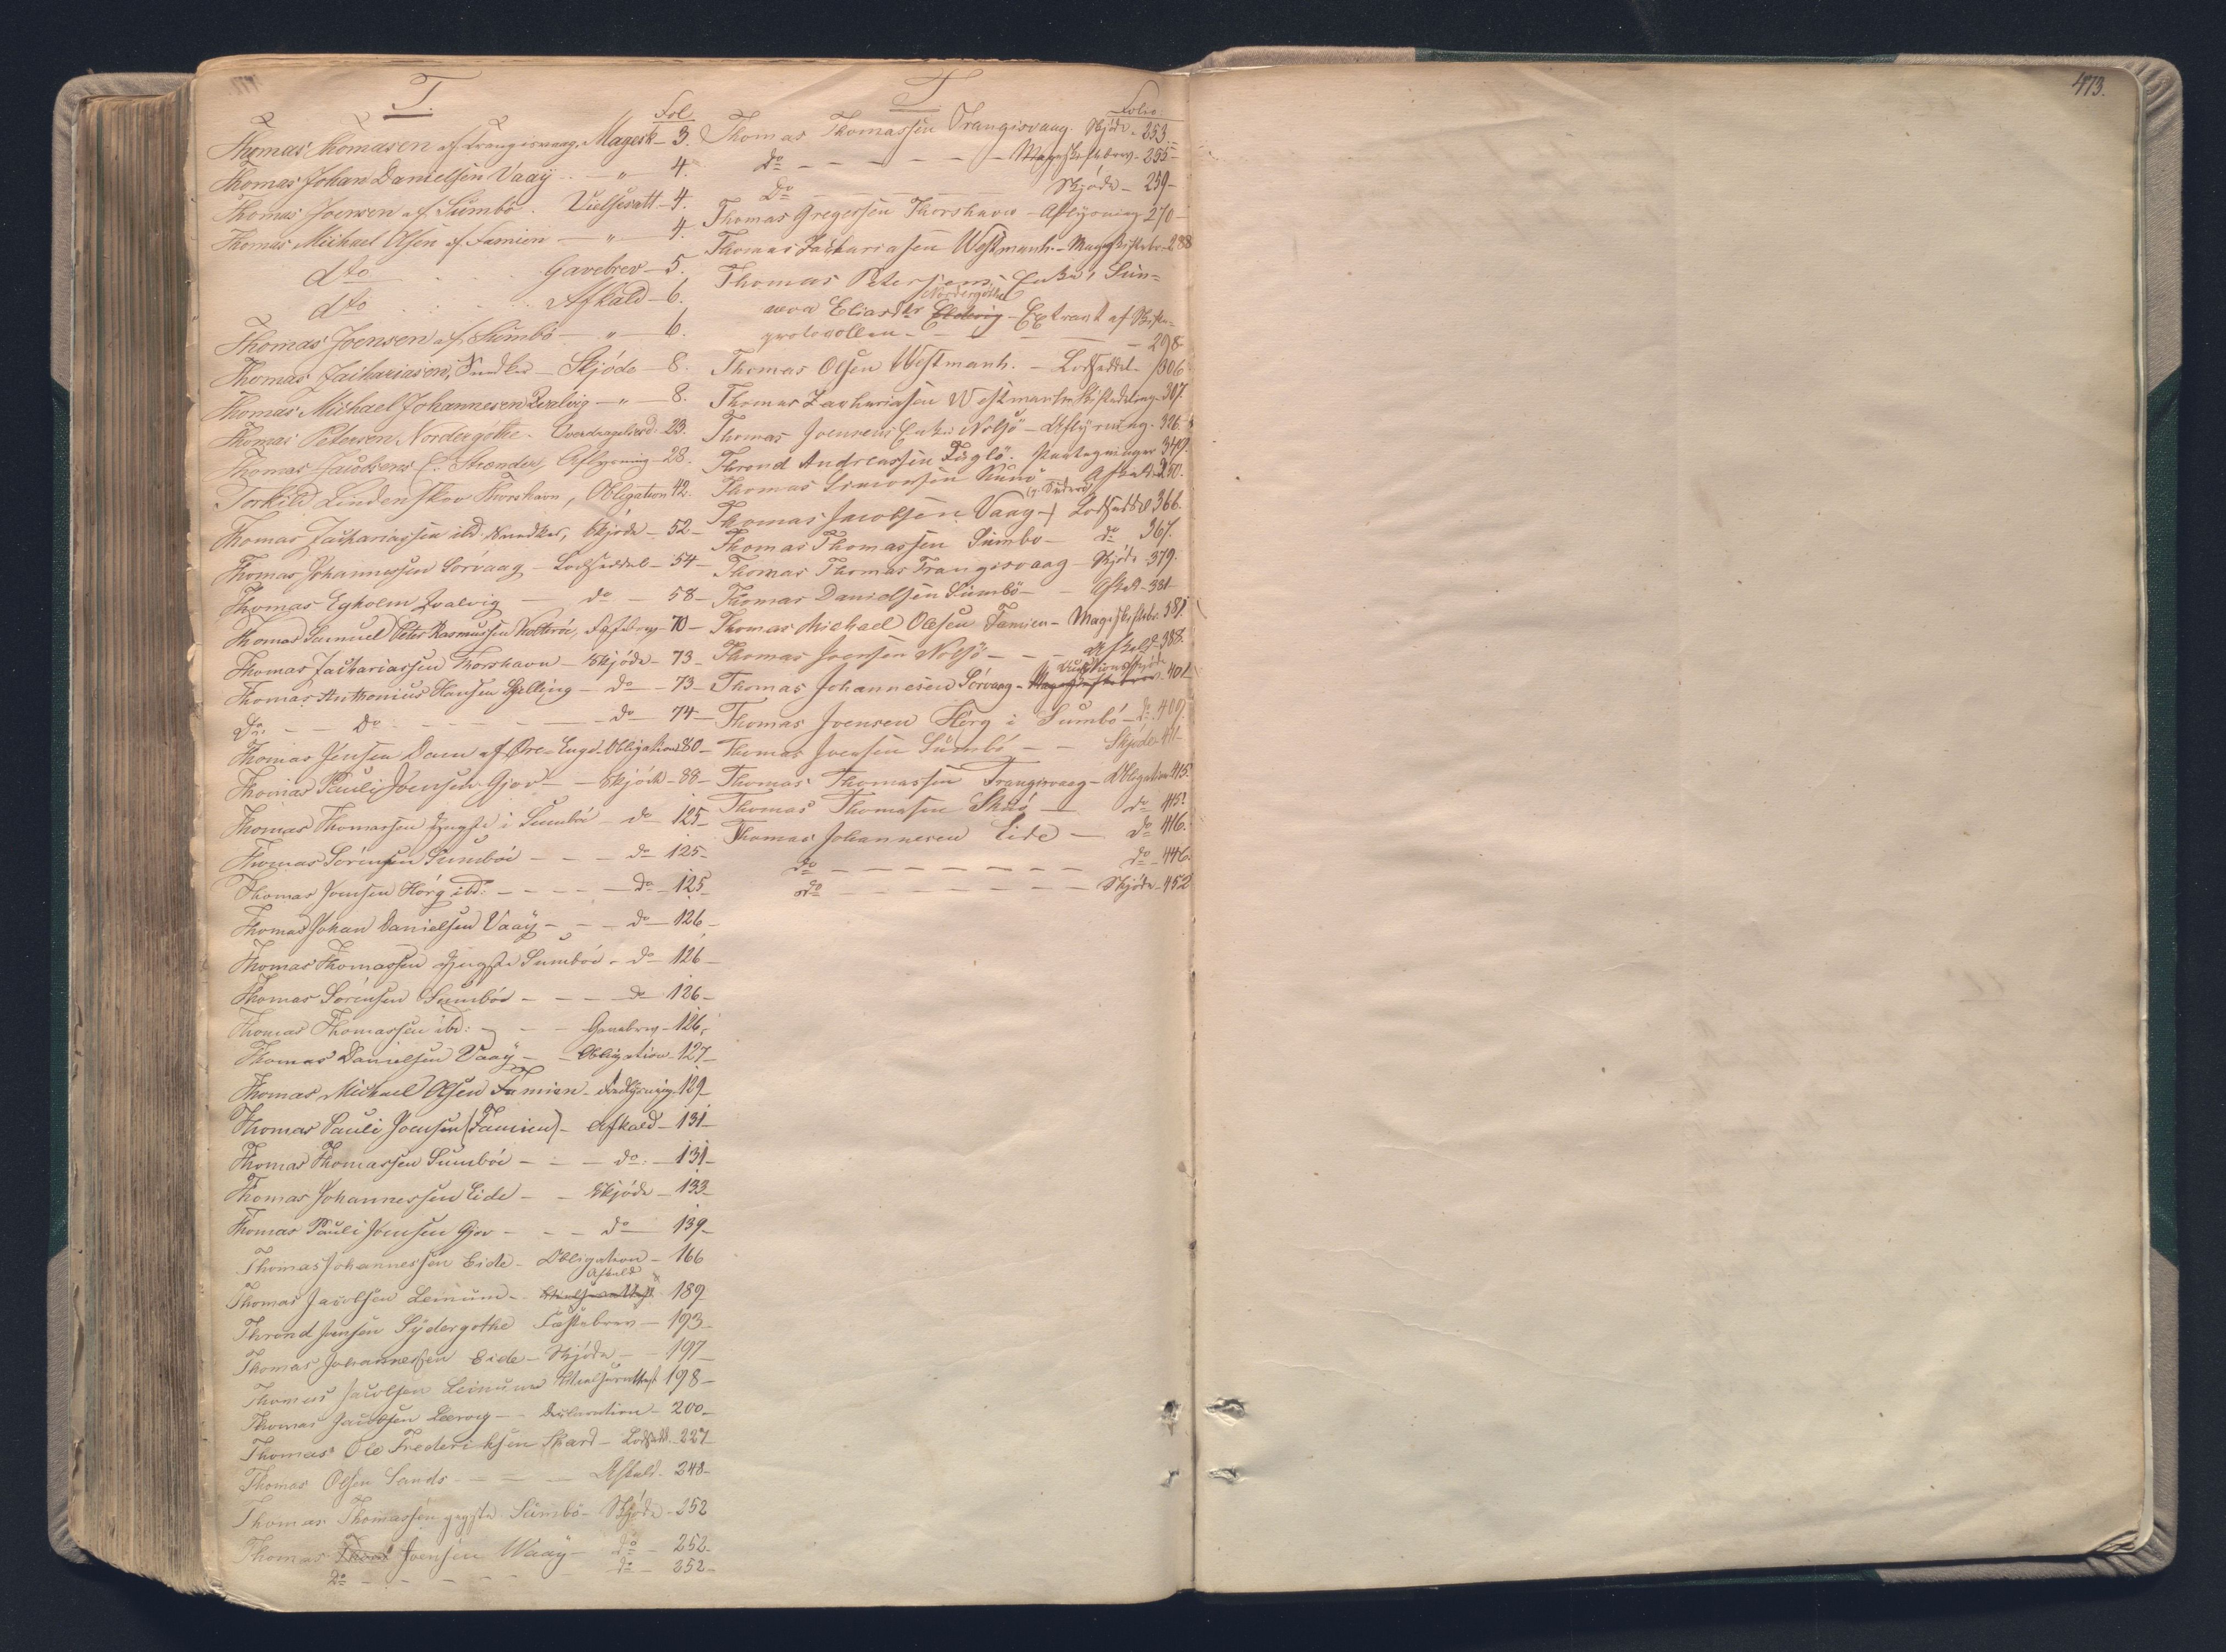 T.
Fol
Thomas Thomasen af Trangisvaag, Magesk – 3.
Thomas Johan Danielsen Vaay – „ – 4.
Thomas Joensen af Sumbö. Vielsesatt – 4.
Thomas Michael Olsen af Famien – „ – 4.
dto Gavebrev – 5.
dto Afkald – 6.
Thomas Joensen af Sumbö – „ – 6.
Thomas Zachariasen, Snedker – Skjöde – 8.
Thomas Michael Johannesen Qvalvig – „ – 8.
Thomas Petersen Nordregöthe. Overdragelsesd. 23.
Thomas Jacobsens Aflysning – 28.
Torkild Lindenskov Thorshavn, Obligation 42.
Thomas Zachariassen ibd. Snedker, Skjöde – 52 –
Thomas Johannessen Sörvaag – Lodseddel – 54 –
Thomas Egholm Qvalvig – do – 58 –
Thomas Samuel Peter Rasmussen Kolteröe, – 70 –
Thomas Zachariassen Thorshavn – Skjöde – 73 –
Thomas Anthonius Hansen Gjelling – do – 73 –
Do – – Do – – – do – 74 –
Thomas Jensen af Obligation 80 –
Thomas Pauli Joensen Gjov – – Skjöde – 88 –
Thomas Thomassen yngste i Sumböe – do – 125 –
Thomas Sörensen Sumböe – – – do – 125 –
Thomas Joensen Hörg ibd: – – – – do – 125 –
Thomas Johan Danielsen Vaay – – – do – 126 –
Thomas Thomassen yngste Sumböe – do – 126 –
Thomas Sörensen Sumböe – – – do – 126 –
Thomas Thomassen ibd: – – – Gavebrev – 126 –
Thomas Danielsen Vaay – – Obligation – 127 –
Thomas Michael Olsen Famien – 129 –
Thomas Pauli Joensen (Famien) – Afkald – 131 –
Thomas Thomassen Sumböe – – – do: – 131 –
Thomas Johannessen Eide – – Skjöde – 133 –
Thomas Pauli Joensen Gjov – – – do – 139 –
Thomas Johannessen Eide – Obligation – 166
Afkald
Thomas Jacobsen Leinum – 189
Thrond Joensen Sydergothe Fæstebrev – 193 –
Thomas Johannesen Eide – Skjöde – – 197 –
Thomas Jacobsen Leinum 198 –
Thomas Jacobsen Leervig – – Declaration – 200 –
Thomas Ole Frederiksen Skard – Lodsedd. – 227 –
Thomas Olsen Sands – – – – Afkald – 248 –
Thomas Thomassen yngste Sumbö – Skjöde – 252
Thomas Joensen Waay – do – 252 –
Do – – – – – do – 252 –
T
Folio.
Thomas Thomassen Trangisvaag. Skjöde – 253.
do – – – – – – Mageskiftebrev – 255 –
Do – – – – – – Skjöde – 259 –
Thomas Gregersen Thorshavn – Aflysning 270 –
Thomas Zachariasen Westmanh. – Mageskiftebr. 288
Thomas Petersens Enke, Sün=
Nordregöthe
neva Eliasdtr Extract af Skifte=
protocollen – – – 298 –
Thomas Olsen Westmanh. – Lodseddel – 306
Thomas Zachariasen Westmanh. 307.
Thomas Joensens Enke Nolsö – Aflysning – 326.
Thrond Andreassen Fuglö. Paategninger 349.
Thomas Simonsen Afkald 350.
(p. Suderö)
Thomas Jacobsen Vaag – Lodseddel 366.
Thomas Thomassen Sumbo – do 367.
Thomas Thomas Trangisvaag – Skjöde 379.
Thomas Danielsen Sumbö – – Afkald – 381 –
Thomas Michael Olesen Famien – Mageskiftebr. 381.
Thomas Joensen Nolsö – – – Afkald – 388.
Auctionsskjöde
Thomas Johannesen Sörvaag – Mageskiftebrev. 401
Thomas Joensen Hörg i Sumbö – do 409.
Thomas Joensen Sumbö – – Skjöde 411 –
Thomas Thomassen Trangisvaag – Obligation 415.
Thomas Thomasen Skuö – do 415?
Thomas Johannesen Eide – do 416.
do – – – – – – – do – 446.
do – – – – – – – Skjöde – 452
473.